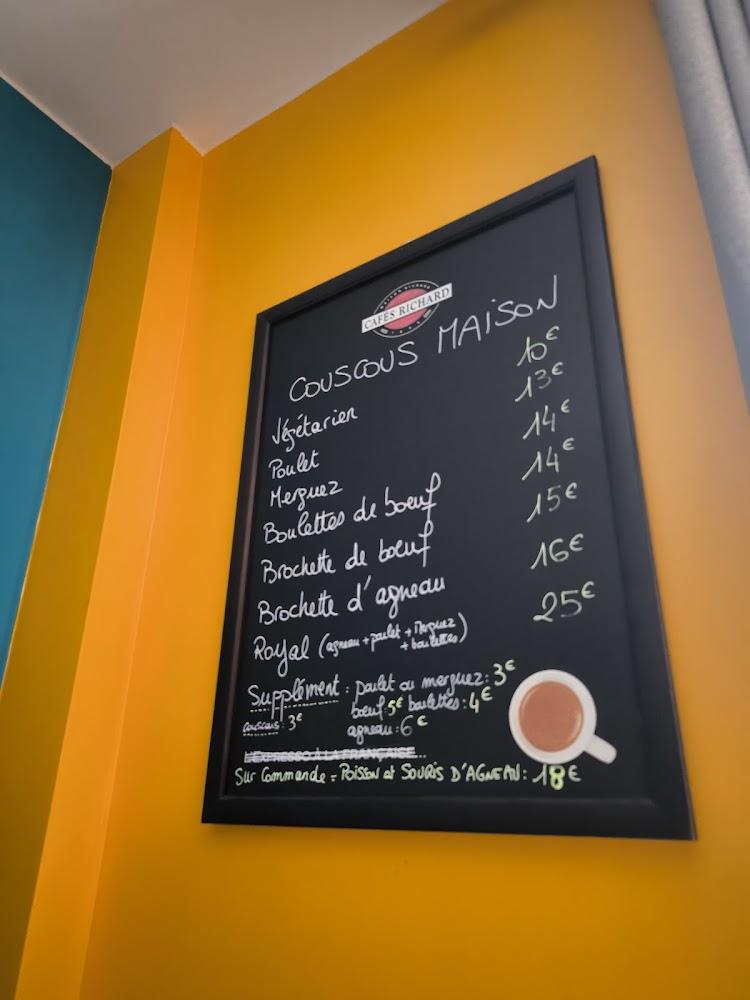 CAFÉS RICHARD
COUSCOUS MAISON
Végétarien 10€
Poulet 13€
Merguez 14€
Boulettes de boeuf 14€
Brochette de boeuf 15€
Brochette d'agneau 16€
Royal (agneau + poulet + Merguez + boulettes) 25€
Supplément : poulet ou merguez : 3€
couscous : 3€ boeuf : 5€ boulettes : 4€
agneau : 6€
L'EXPRESSO À LA FRANÇAISE...
Sur Commande = POISSON et SOURIS D'AGNEAU : 18€